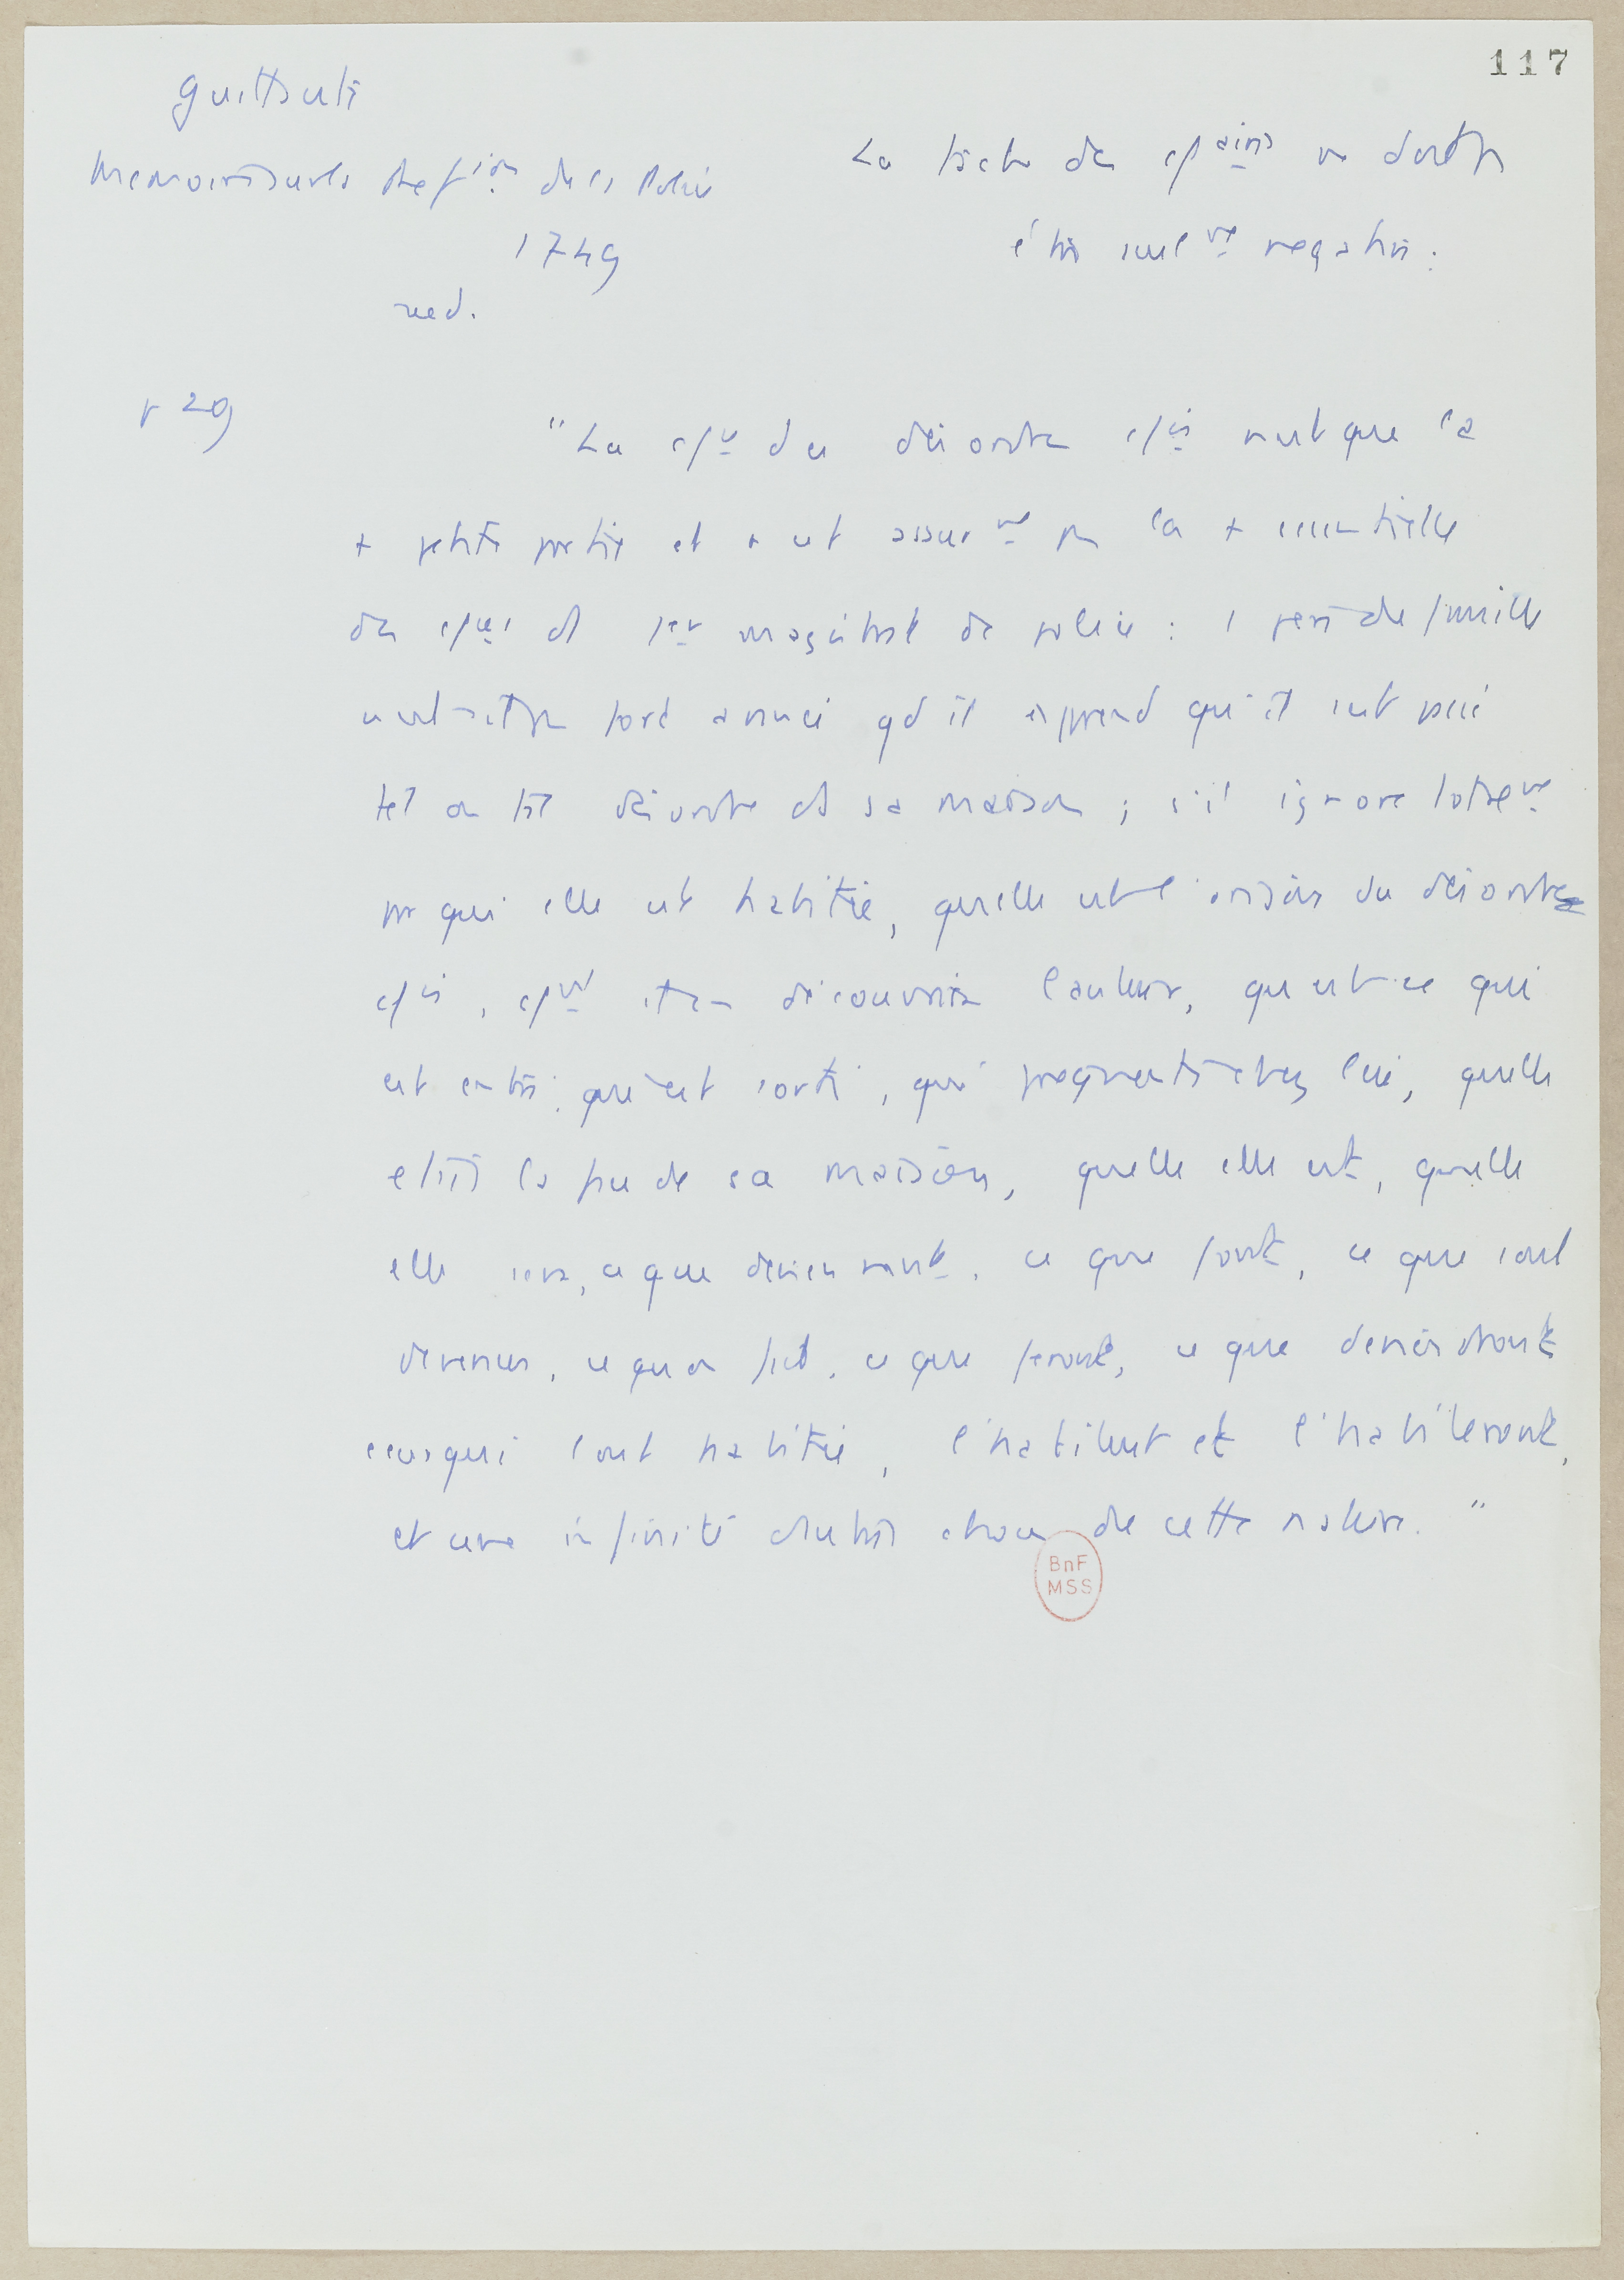 117
Guillauté
Memoire sur la Ref ion de la Police
1749
reed.
La tâche du ne doit pas
être seulement negative :
p 29
"La du désordre n'est que la
+ petite partie et n'est assurement pas la + essentielle
des du 1er magistrat de police : 1 père de famille
n'est-il pas fort avancé qd il apprend qu'il s'est passé
tel ou tel désordre ds sa maison ; s'il ignore totalement
par qui elle est habitée, quelle est l'origine du désordre
, comment en découvrir l'auteur, qu'est-ce qui
est entré, qui est sorti, qui frequente chez lui, quelle
etait la face de sa maison, quelle elle est, quelle
elle sera, ce que deviennent, ce que font, ce que sont
devenus, ce qu'on fait, ce que feront, ce que deviendront
ceux qui l'ont habitée, l'habitent et l'habiteront,
et une infinité d'autres choses de cette nature."
BnF
MSS